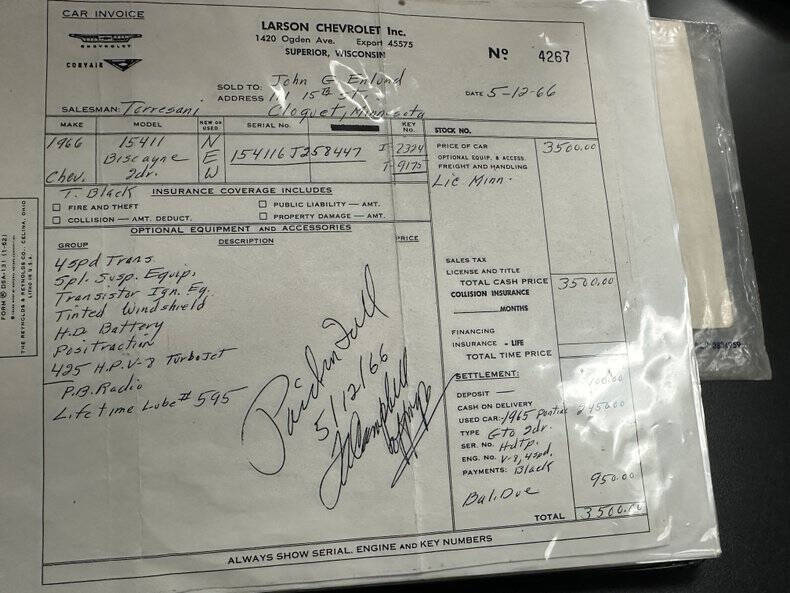 CAR INVOICE
CHEVROLET
CORVAIR
LARSON CHEVROLET Inc.
1420 Ogden Ave. Export 45575
SUPERIOR, WISCONSIN
No 4267
SOLD TO: John G Enlund
DATE 5-12-66
ADDRESS 111 15th St.
SALESMAN: Torresani Cloquet, Minnesota
MAKE MODEL NEW OR USED SERIAL No. KEY No. STOCK NO.
1966 15411 N I-2324 PRICE OF CAR 3500.00
Biscayne E 154116J258447 OPTIONAL EQUIP. & ACCESS.
Chev. 2dr. W T-9175 FREIGHT AND HANDLING
Lic Minn.
T. Black INSURANCE COVERAGE INCLUDES
FIRE AND THEFT PUBLIC LIABILITY — AMT.
COLLISION — AMT. DEDUCT. PROPERTY DAMAGE — AMT.
OPTIONAL EQUIPMENT AND ACCESSORIES
GROUP DESCRIPTION PRICE
4spd Trans
Spl. Susp. Equip.
Transistor Ign. Eq.
Tinted Windshield
H.D. Battery
Positraction
425 H.P. V-8 Turbo Jet
P.B. Radio
Lifetime Lube # 595
Paid in Full
5/12/66
Campbell
SALES TAX
LICENSE AND TITLE
TOTAL CASH PRICE 3500.00
COLLISION INSURANCE
MONTHS
FINANCING
INSURANCE - LIFE
TOTAL TIME PRICE
SETTLEMENT:
DEPOSIT — 100.00
CASH ON DELIVERY
USED CAR:- 1965 Pontiac 2450.00
TYPE GTO 2dr.
SER. NO. Hdtp.
ENG. NO. V-8, 4spd.
PAYMENTS: Black
Bal. Due 950.00
TOTAL 3500.00
ALWAYS SHOW SERIAL, ENGINE AND KEY NUMBERS
FORM DSA-131 (1-62)
THE REYNOLDS & REYNOLDS CO., CELINA, OHIO
LITHO IN U.S.A.